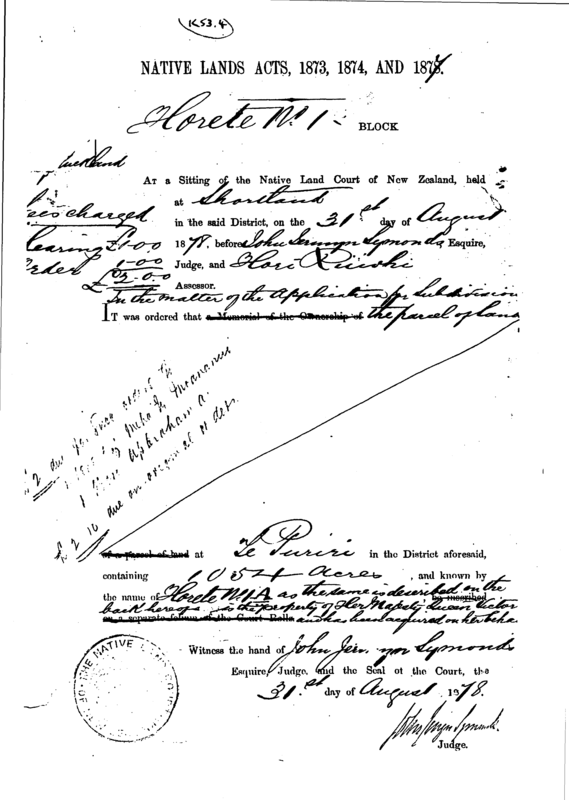 K53.4
NATIVE LANDS ACTS, 1873, 1874, AND 1878.
Horete No. 1 BLOCK
Auckland
AT a Sitting of the Native Land Court of New Zealand, held
at Shortland
in the said District, on the 31st day of August
1878. before John Jermyn Symonds Esquire,
Judge, and Hori
Assessor.
charged
earing £1-00
Order 1-00
£2-00
In the matter of the Application for Subdivision
IT was ordered that a Memorial of the Ownership of the parcel of land
£2 due for
1
1
£2 is due on original orders
of a parcel of land at Te Puriri in the District aforesaid,
containing 1054 Acres, and known by
the name of Horete No 1A as the same is described on the be inscribed
back hereof is the property of Her Majesty Queen Victor
on a separate folium of the Court Rolls and has been acquired on her beha
Witness the hand of John Jermyn Symonds
Esquire, Judge, and the Seal of the Court, the
31st day of August 1878.
THE NATIVE
Judge.